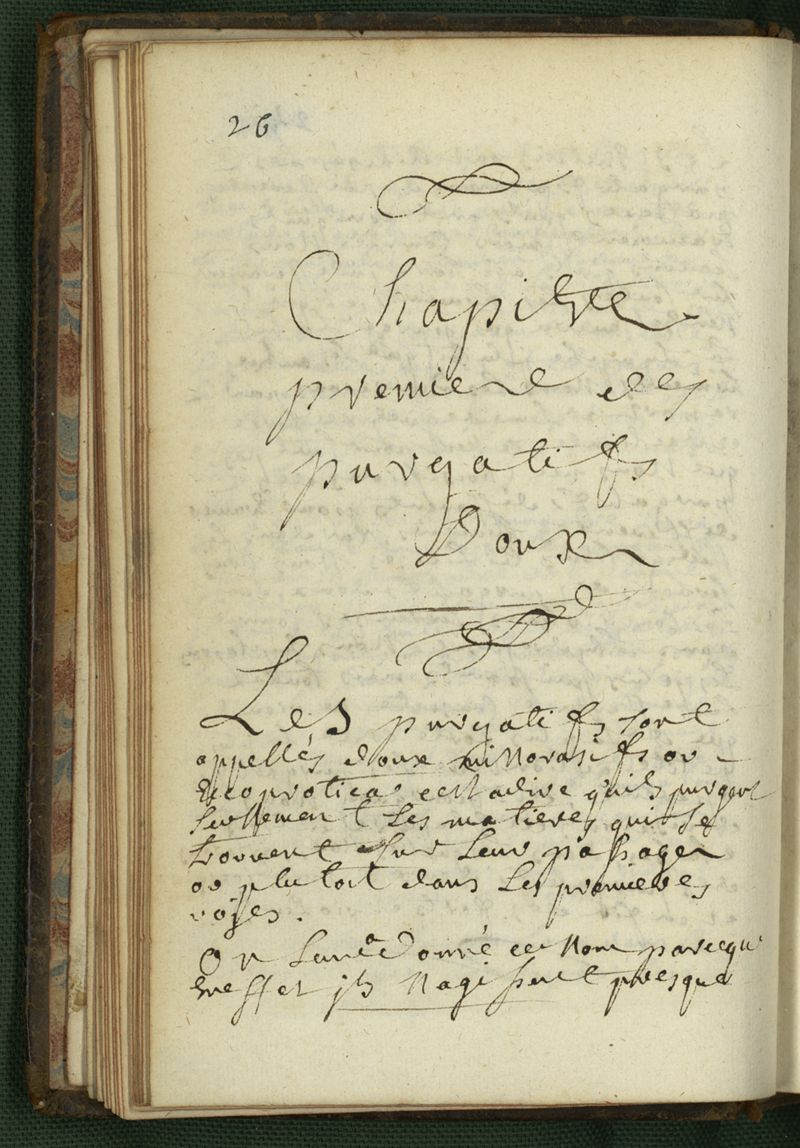 26
Chapitre
premiere des
purgatifs
Doux
Les purgatifs sont
appellés doux minoratifs ou
Eccoprotica cestadire quils purgent
seullement les matieres qui se
trouvent sur leur passage
ou plutost dans les premieres
voÿes.
On leur a donné ce nom parcequ'
eneffet jls nagissent presque